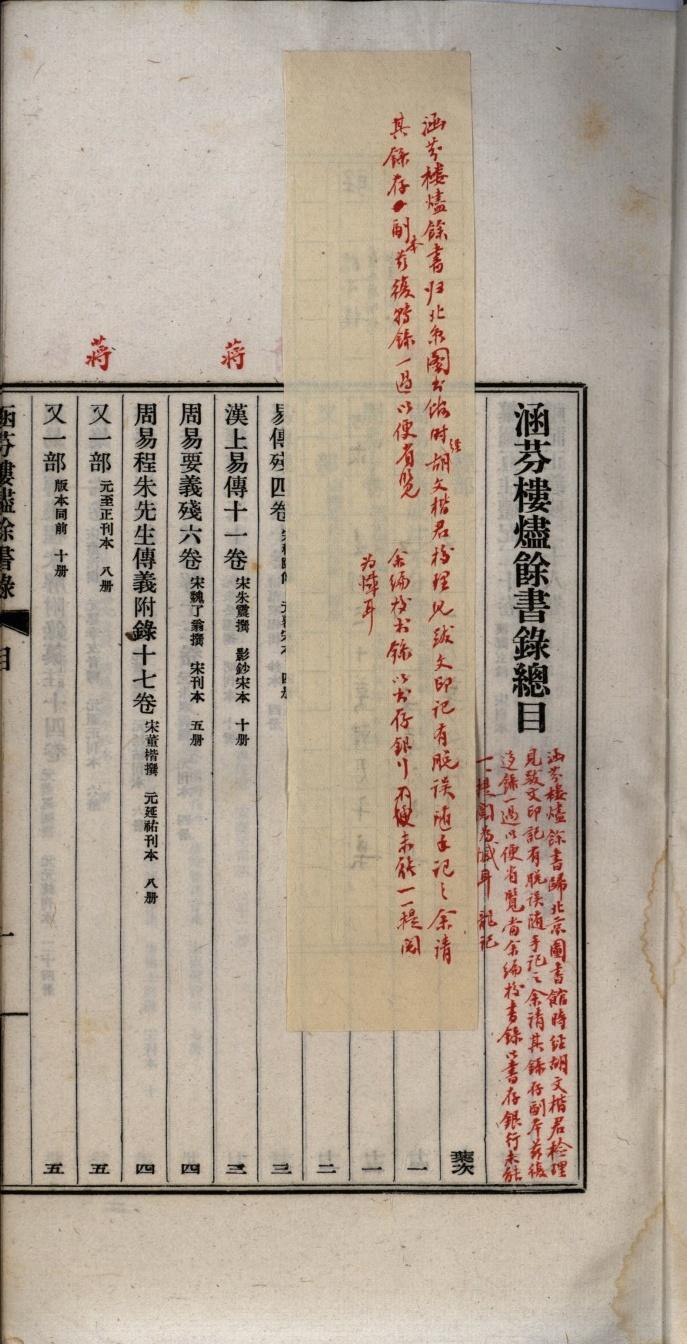 涵芬樓燼餘書錄總目
葉次
涵芬樓燼餘書歸北京圖書館時經胡文楷君檢理
見跋文印記有脫誤隨手記之余請其錄存副本茲復
迻錄一過以便省覽當余編校書錄以書存銀行未能
一一提閱為憾耳 龍記
涵芬樓燼餘書归北京圖书馆时經胡文楷君檢理見跋文印記有脫误随手記之余请
其錄存副本茲復移錄一過以便省覽
余编校书錄以书存銀行不便未能一一提閱
为憾耳
一
一
二
易傳殘四卷 四册 三
漢上易傳十一卷 宋朱震撰 影鈔宋本 十册 三
周易要義殘六卷 宋魏了翁撰 宋刊本 五册 四
周易程朱先生傳義附錄十七卷 宋董楷撰 元延祐刊本 八册 四
又一部 元至正刊本 八册 五
又一部 版本同前 十册 五
蔣
蔣
涵芬樓燼餘書錄 目 一